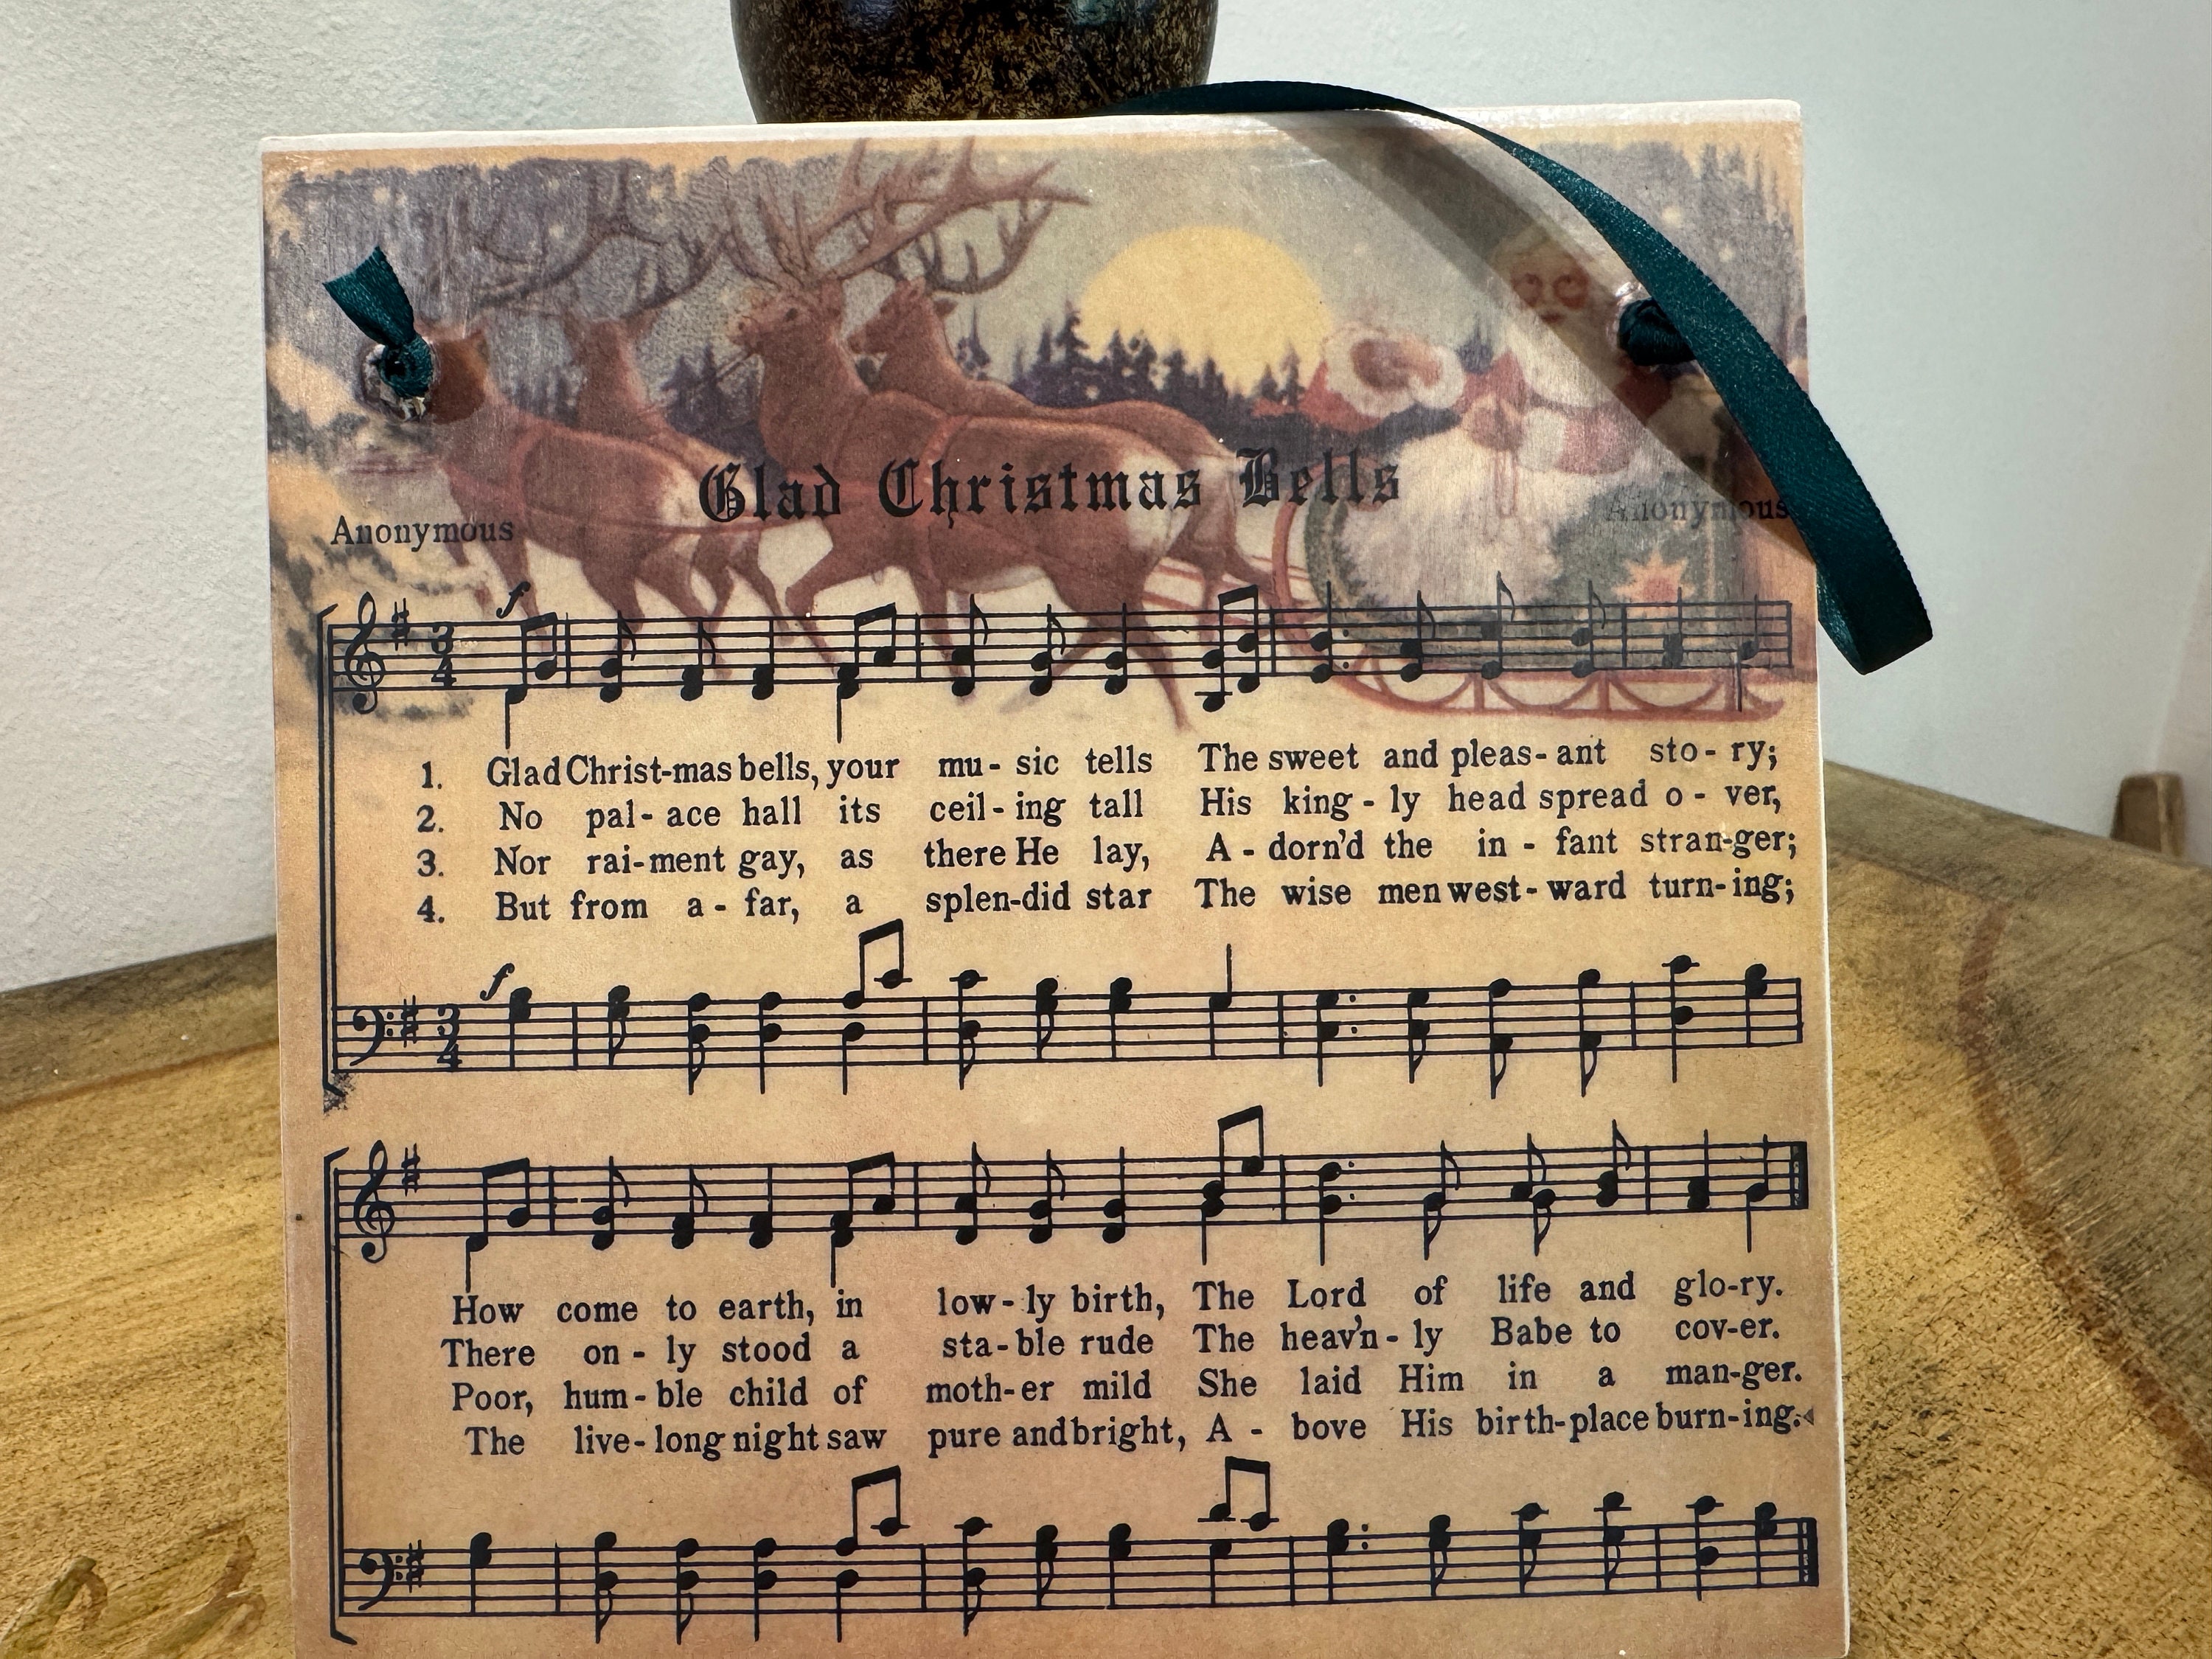 Glad Christmas Bells
Anonymous Anonymous
f
3
4
1. Glad Christ-mas bells, your mu-sic tells The sweet and pleas-ant sto-ry;
2. No pal-ace hall its ceil-ing tall His king-ly head spread o-ver,
3. Nor rai-ment gay, as there He lay, A-dorn'd the in-fant stran-ger;
4. But from a-far, a splen-did star The wise men west-ward turn-ing;
f
3
4
How come to earth, in low-ly birth, The Lord of life and glo-ry.
There on-ly stood a sta-ble rude The heav'n-ly Babe to cov-er.
Poor, hum-ble child of moth-er mild She laid Him in a man-ger.
The live-long night saw pure and bright, A-bove His birth-place burn-ing.